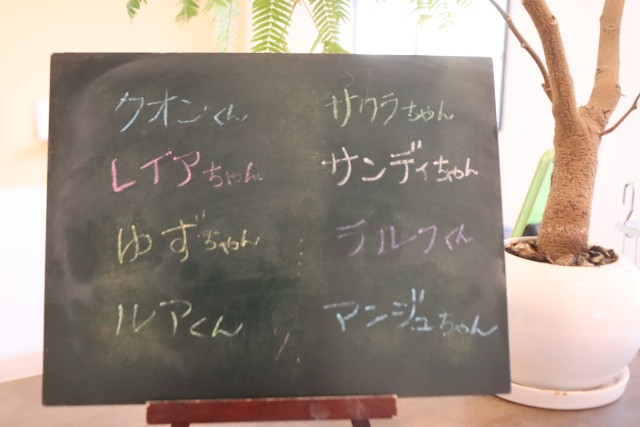 クオンくん
レイアちゃん
ゆずちゃん
ルアくん
サクラちゃん
サンディちゃん
ラルフくん
マンジュちゃん